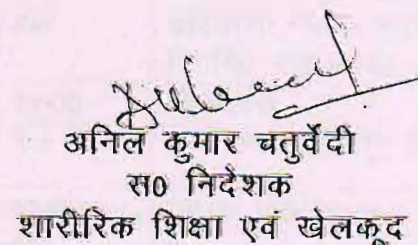 अनिल कुमार चतुर्वेदी
स0 निदेशक
शारीरिक शिक्षा एवं खेलकूद